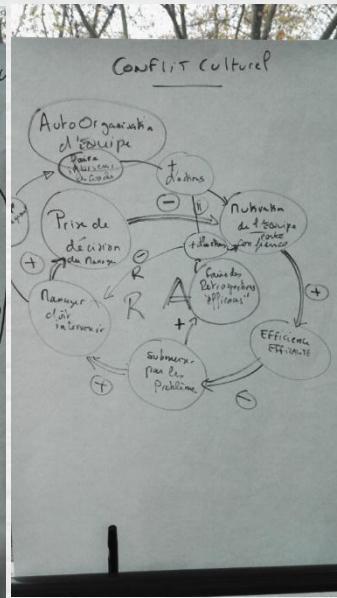 CONFLIT CULTUREL
Auto Organisation
d'Equipe
Faire
+
d'actions
-
Prise de
décision
du Manager
Motivation
de l'Equipe
confiance
-
R
+ d'actions
+
R A
Faire des
Retrospectives
"efficaces"
+
Manager
doit
intervenir
+
Efficience
Efficacité
Submergé
par les
Problème
+
-